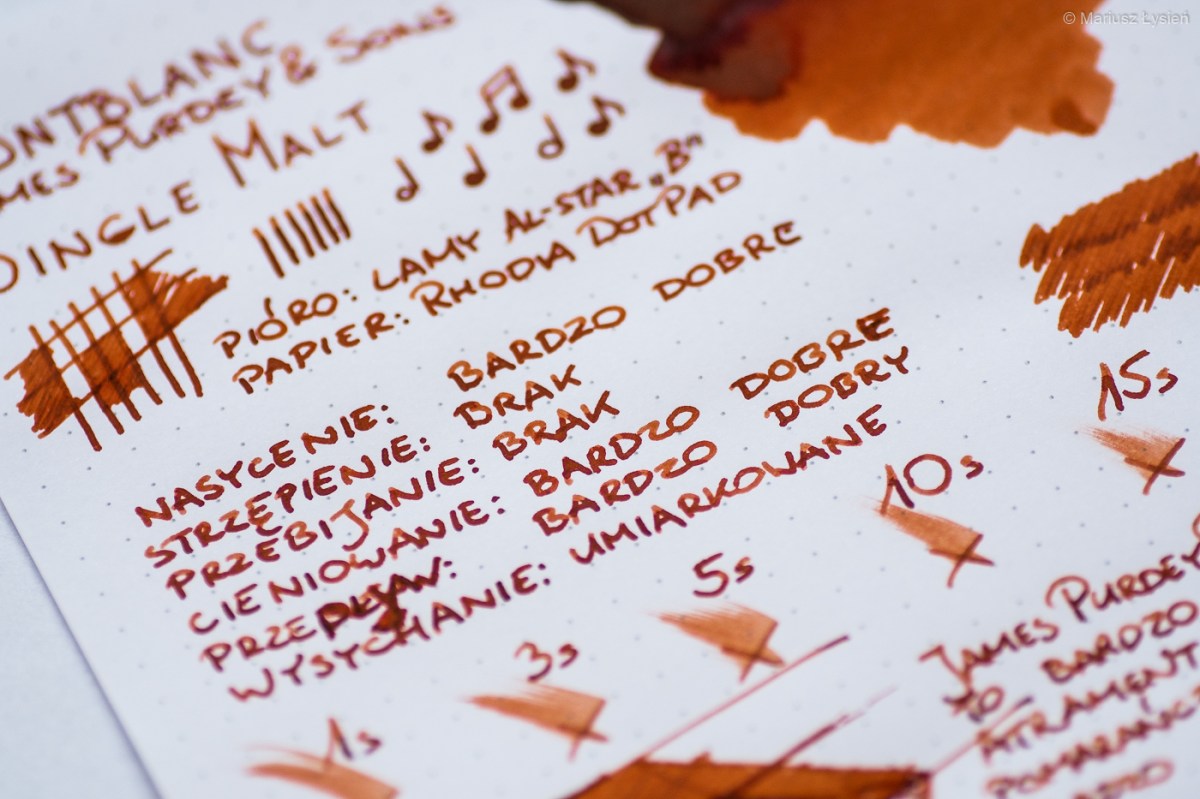 © Mariusz Łysień
ONTBLANC
MES PURDEY & SONS
SINGLE MALT
PIÓRO: LAMY AL-STAR „B”
PAPIER: RHODIA DOTPAD
NASYCENIE: BARDZO DOBRE
STRZĘPIENIE: BRAK
PRZEBIJANIE: BRAK
CIENIOWANIE: BARDZO DOBRE
PRZEPŁYW: BARDZO DOBRY
WYSYCHANIE: UMIARKOWANE
1s 3s 5s 10s 15s
JAMES PURDEY
TO BARDZO
ATRAMENT